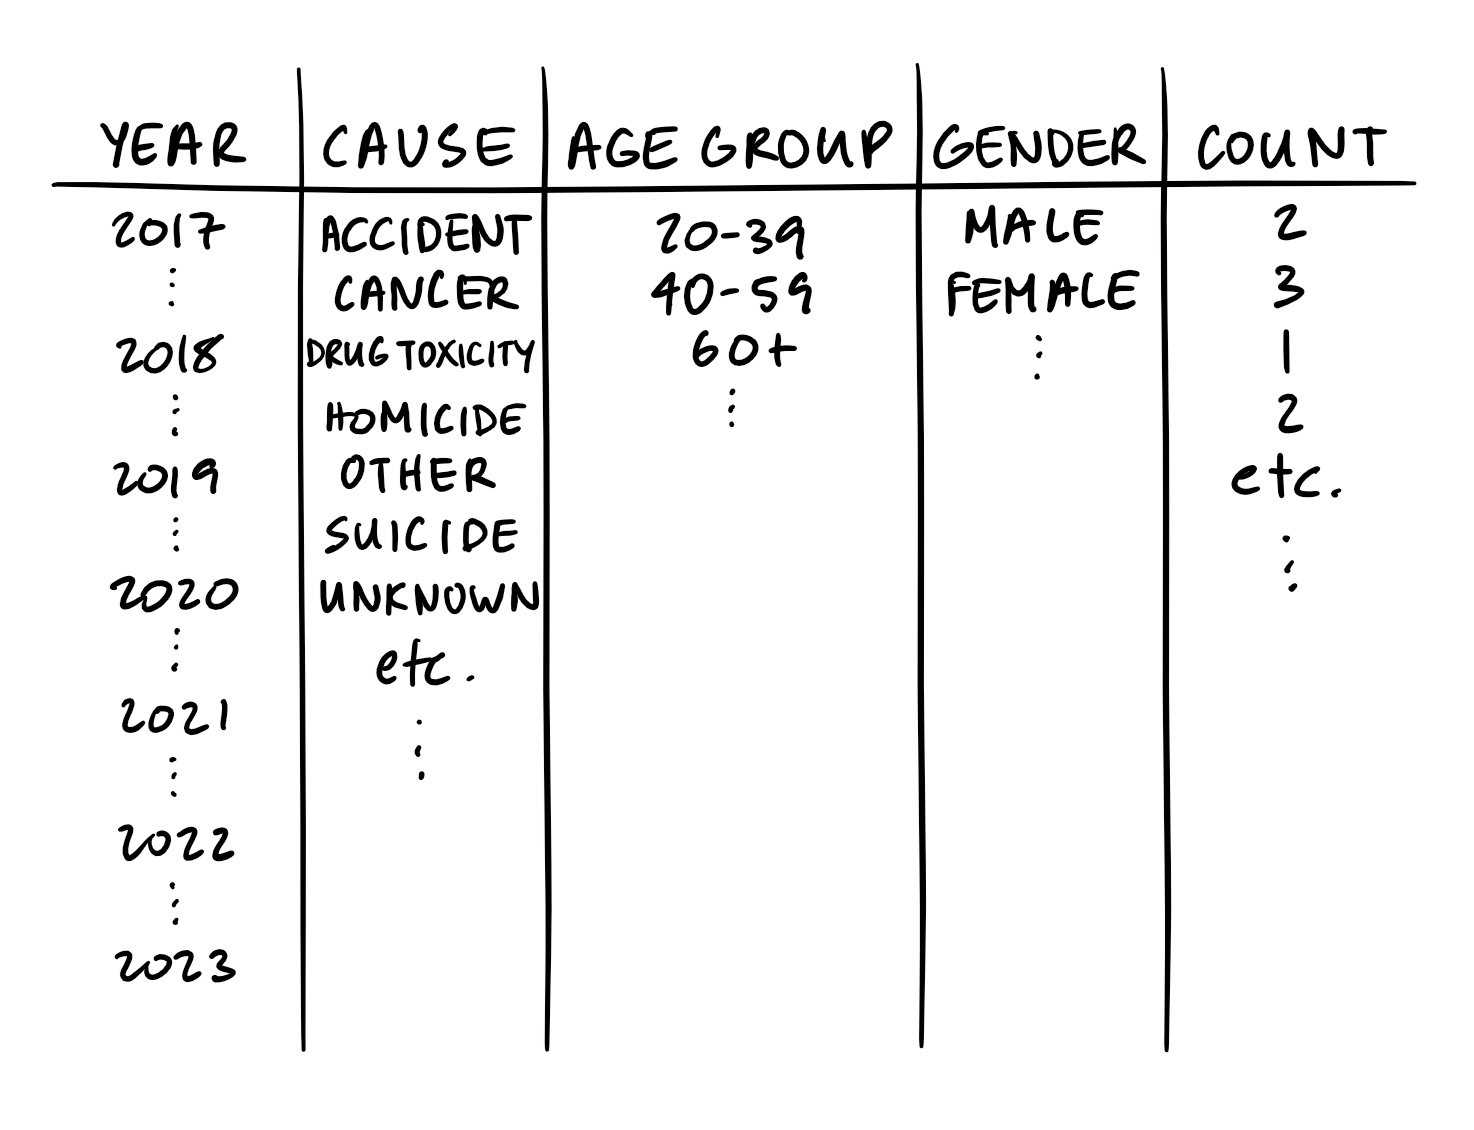 YEAR CAUSE AGE GROUP GENDER COUNT
2017 ACCIDENT 20-39 MALE 2
⋮ CANCER 40-59 FEMALE 3
2018 DRUG TOXICITY 60+ ⋮ 1
⋮ HOMICIDE ⋮ 2
2019 OTHER etc.
⋮ SUICIDE ⋮
2020 UNKNOWN
⋮ etc.
2021 ⋮
⋮
2022
⋮
2023